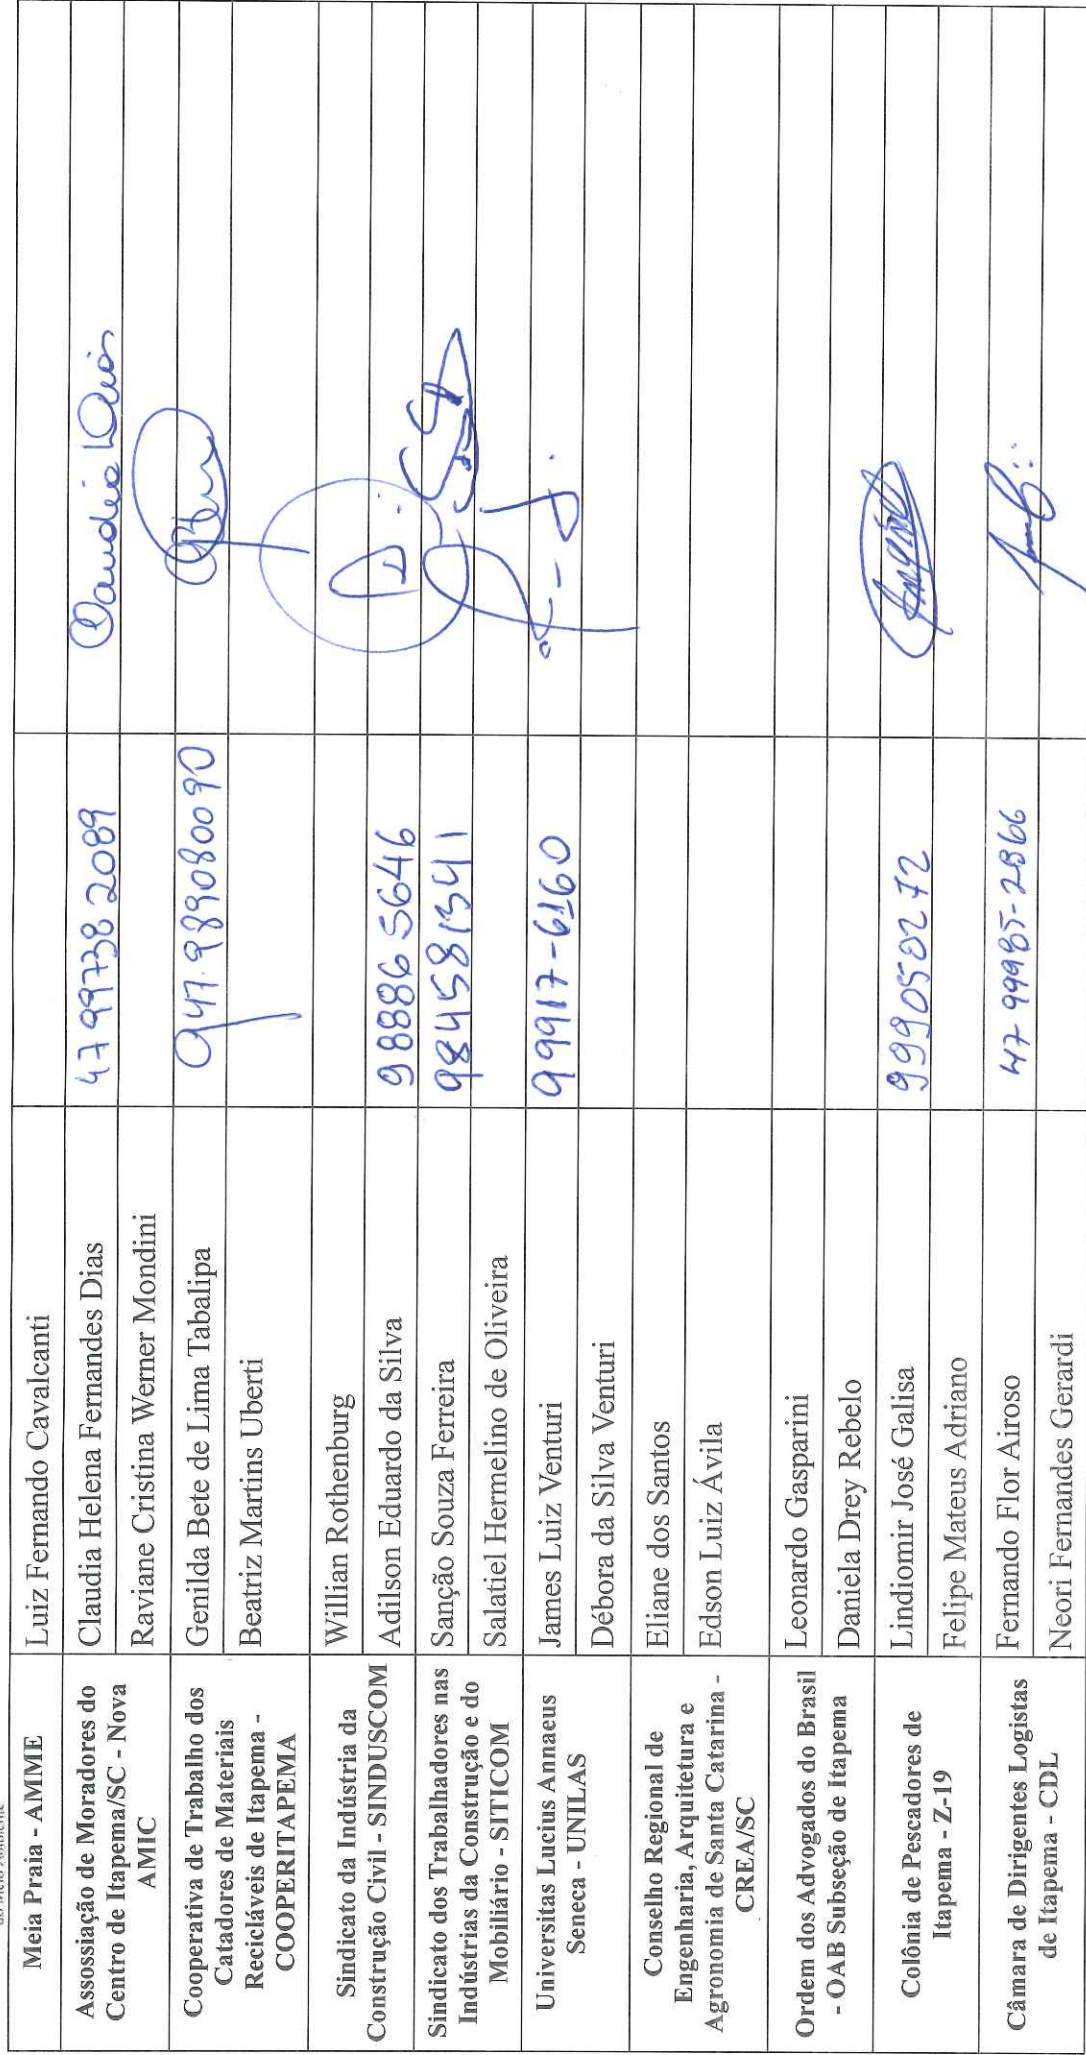 Meia Praia - AMME
Luiz Fernando Cavalcanti
Assossiação de Moradores do
Centro de Itapema/SC - Nova
AMIC
Claudia Helena Fernandes Dias
47 99738 2089
Claudia Dias
Raviane Cristina Werner Mondini
Cooperativa de Trabalho dos
Catadores de Materiais
Recicláveis de Itapema -
COOPERITAPEMA
Genilda Bete de Lima Tabalipa
947.989080090
Beatriz Martins Uberti
Sindicato da Indústria da
Construção Civil - SINDUSCOM
Willian Rothenburg
Adilson Eduardo da Silva
98886 5646
Sindicato dos Trabalhadores nas
Indústrias da Construção e do
Mobiliário - SITICOM
Sanção Souza Ferreira
984581341
Salatiel Hermelino de Oliveira
Universitas Lucius Annaeus
Seneca - UNILAS
James Luiz Venturi
99917-6160
Débora da Silva Venturi
Conselho Regional de
Engenharia, Arquitetura e
Agronomia de Santa Catarina -
CREA/SC
Eliane dos Santos
Edson Luiz Ávila
Ordem dos Advogados do Brasil
- OAB Subseção de Itapema
Leonardo Gasparini
Daniela Drey Rebelo
Colônia de Pescadores de
Itapema - Z-19
Lindiomir José Galisa
999050272
Felipe Mateus Adriano
Câmara de Dirigentes Logistas
de Itapema - CDL
Fernando Flor Airoso
47 99985-2866
Neori Fernandes Gerardi